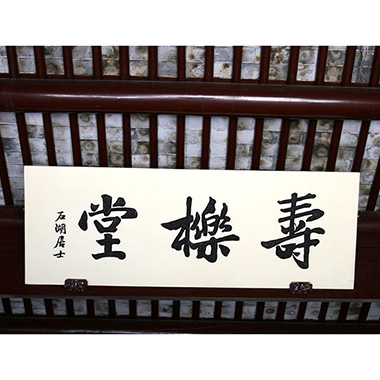 壽櫟堂
石湖居士